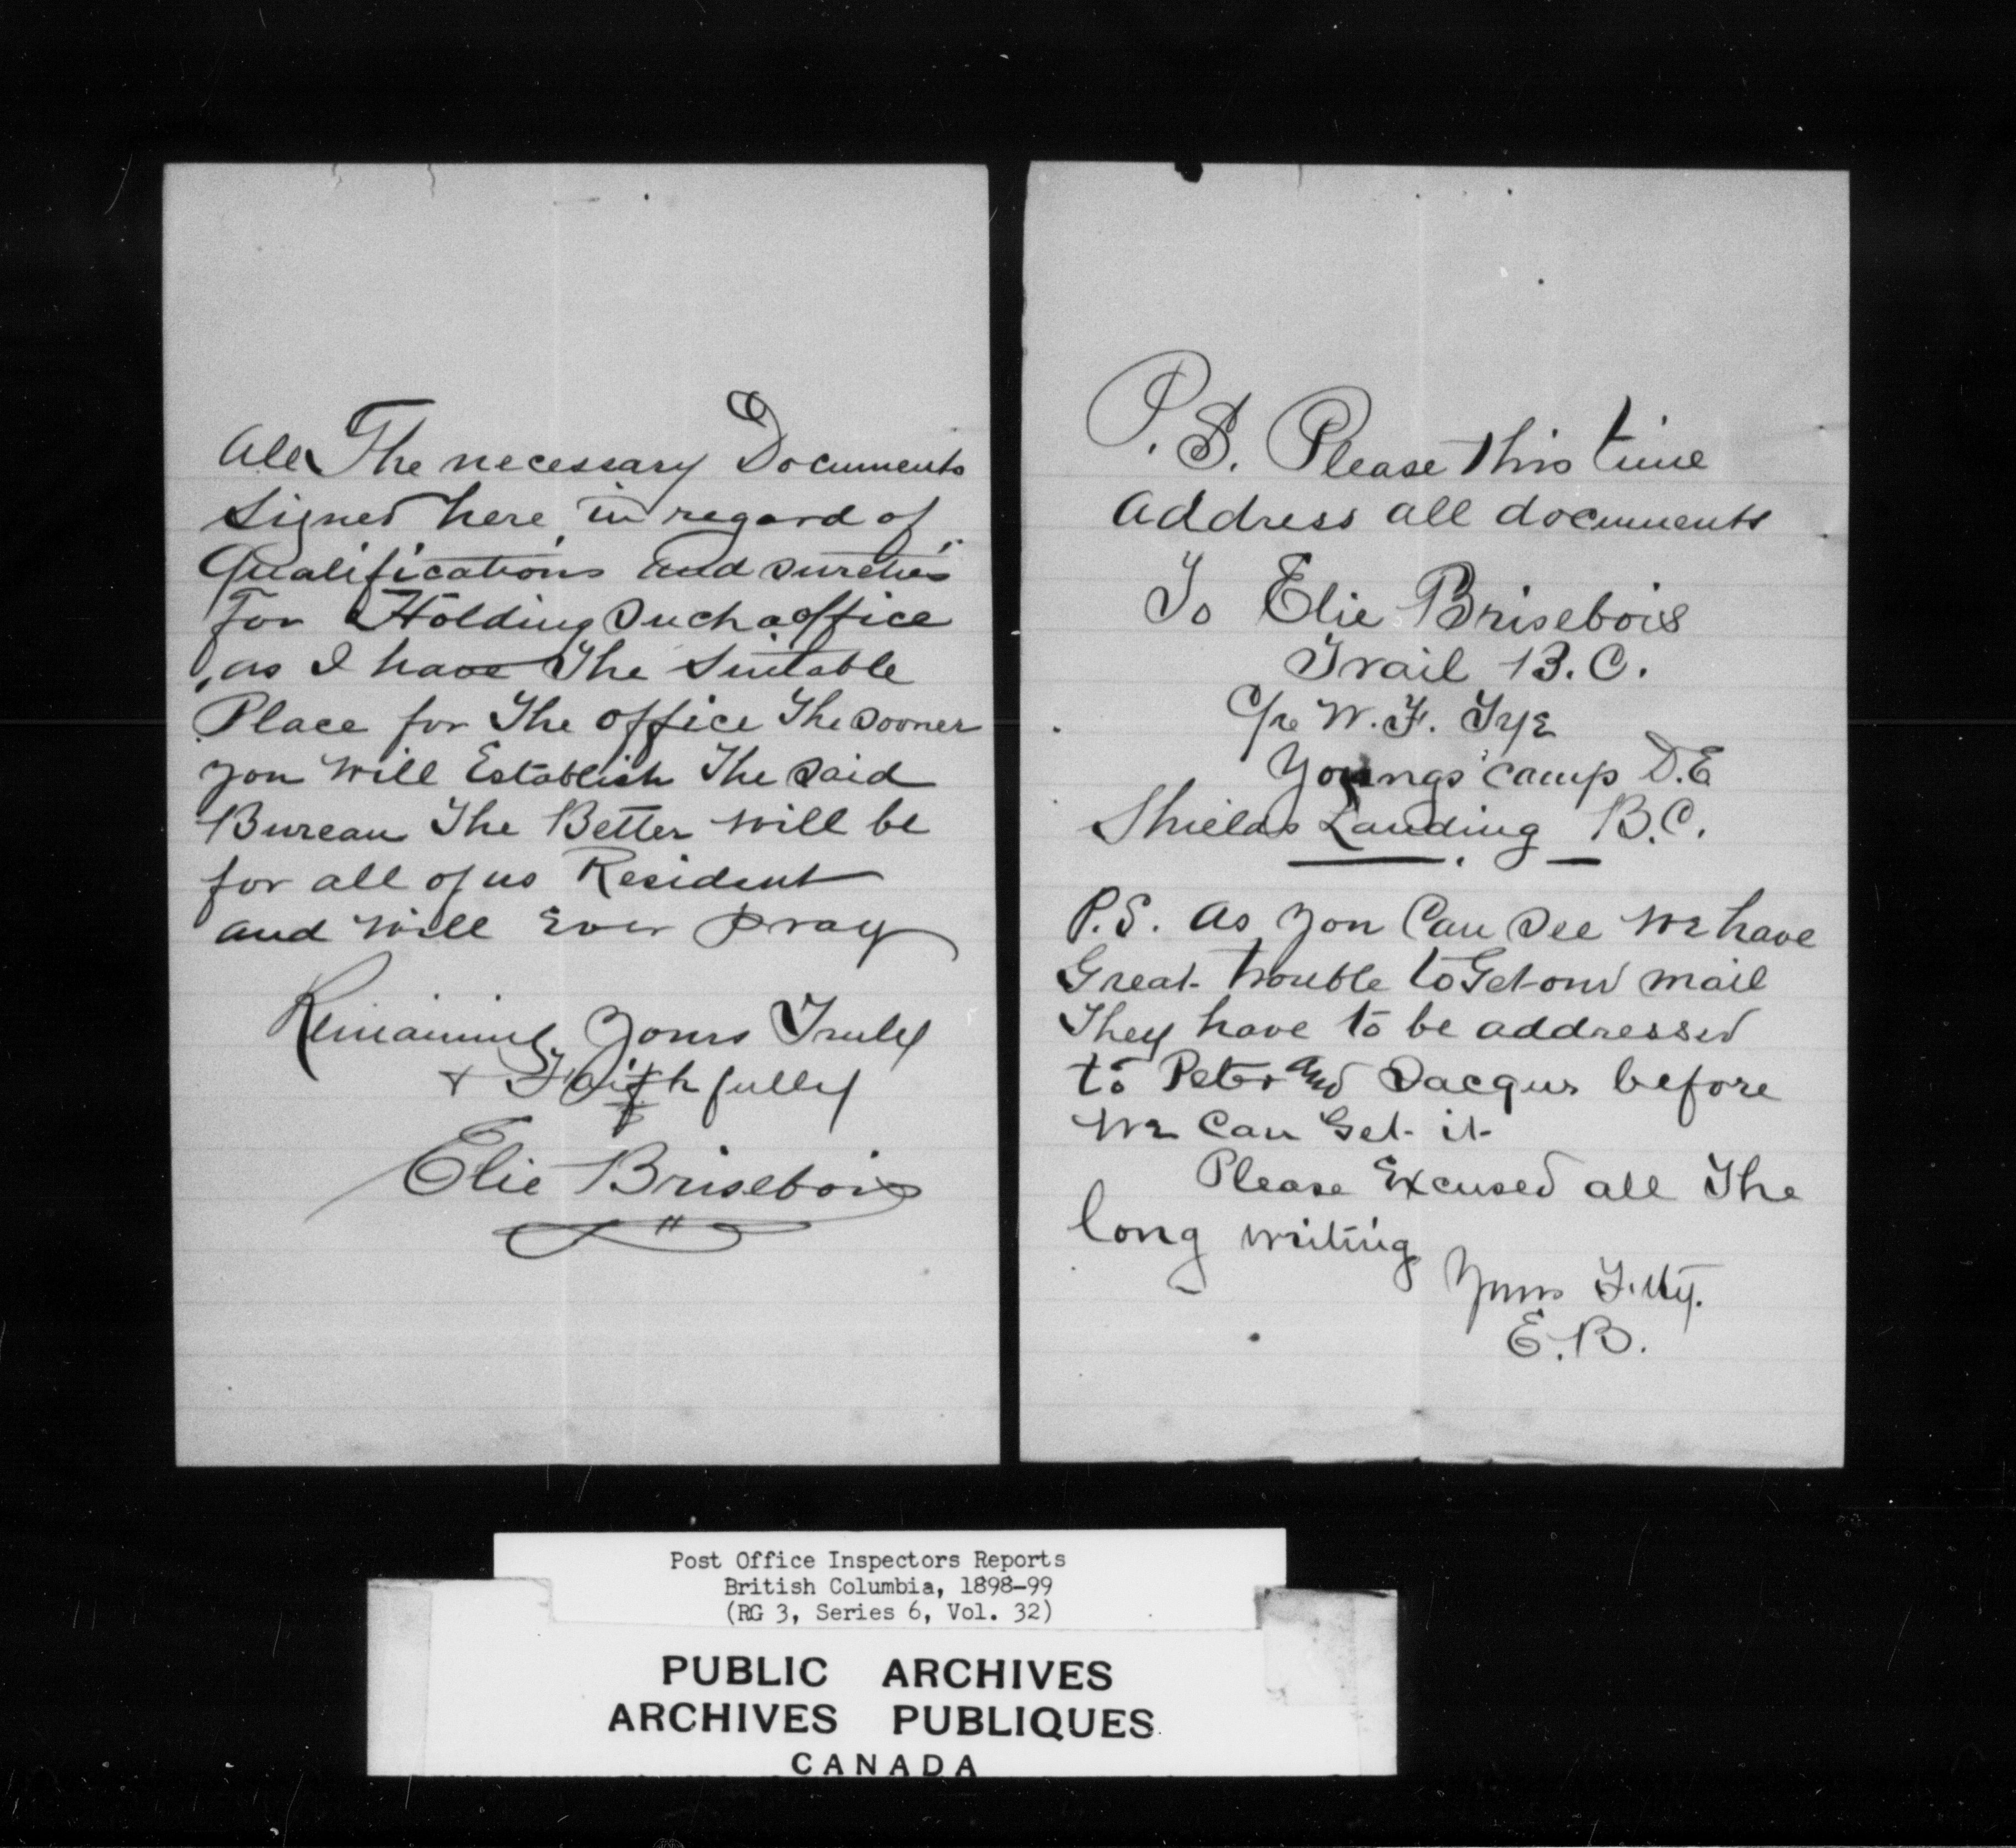 All The necessary Documents
signed here in regard of
Qualifications and sureties
For Holding such a office
, as I have The Suitable
Place for The office The sooner
you will Establish The said
Bureau The Better will be
for all of us Resident
and will Ever pray
Remaining Yours Truly
& Faithfully
Elie Brisebois
P.S. Please this time
address all documents
To Elie Brisebois
Trail B.C.
C/o W. F. Tye
Youngs camp D.E
Shields Landing B.C.
P.S. as you Can see we have
Great trouble to Get our mail
They have to be addressed
to Peter and Jacques before
we Can Get it
Please Excused all The
long writing
Yours
E.B.
Post Office Inspectors Reports
British Columbia, 1898-99
(RG 3, Series 6, Vol. 32)
PUBLIC ARCHIVES
ARCHIVES PUBLIQUES
CANADA